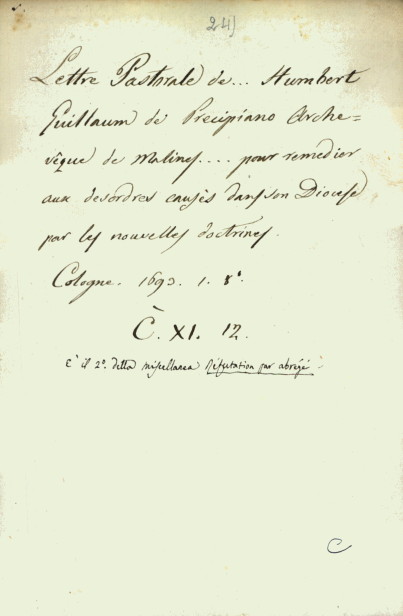 245
Lettre Pastorale de... Humbert
Guillaum de Precipiano Arche=
vêque de Malines.... pour remedier
aux desordres causés dans son Diocese
par les nouvelles doctrines.
Cologne. 1693. 1. 8º.
C. XI. 12.
È il 2º. della miscellanea Réfutation par abrégé
C